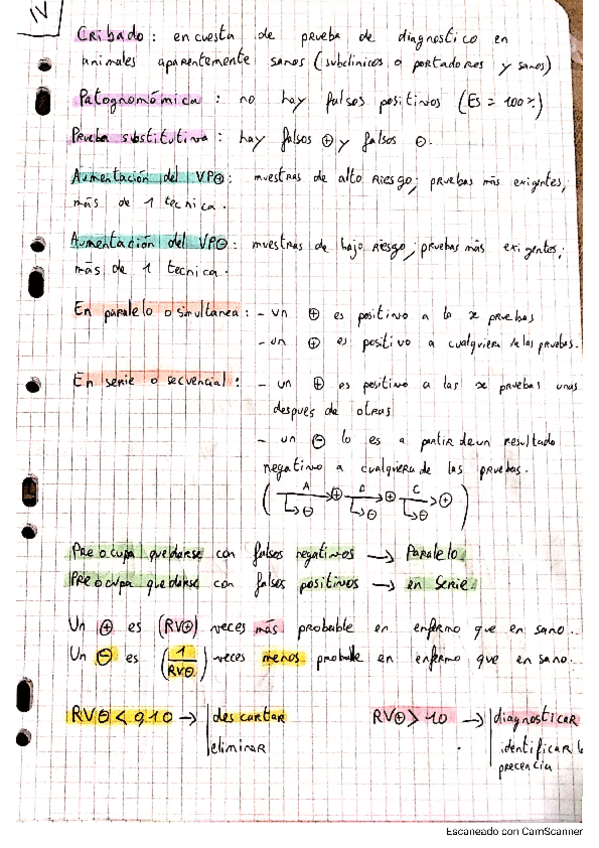 IV
Cribado : encuesta de prueba de diagnostico en
animales aparentemente sanos (subclinicos o portadores y sanos)
Patognomómica : no hay falsos positivos (Es = 100%)
Prueba substitutiva : hay falsos ⊕ y falsos ⊖.
Aumentación del VP⊕ : muestras de alto riesgo ; pruebas más exigentes,
más de 1 tecnica .
Aumentación del VP⊖ : muestras de bajo riesgo ; pruebas más exigentes ;
más de 1 tecnica .
En paralelo o simultanea : - un ⊕ es positivo a la x pruebas
- un ⊕ es positivo a cualquiera de las pruebas.
En serie o secuencial : - un ⊕ es positivo a las x pruebas unas
despues de otras
- un ⊖ lo es a partir de un resultado
negativo a cualquiera de las pruebas.
( A → ⊕ B → ⊕ C → ⊕ )
↳ ⊖ ↳ ⊖ ↳ ⊖
Preocupa quedarse con falsos negativos → Paralelo.
Preocupa quedarse con falsos positivos → en serie.
Un ⊕ es (RV⊕) veces más probable en enfermo que en sano..
Un ⊖ es (1/RV⊖) veces menos probable en enfermo que en sano..
RV⊖ < 0,10 → descartar RV⊕ > 10 → diagnosticar
eliminar identificar
precencia
Escaneado con CamScanner